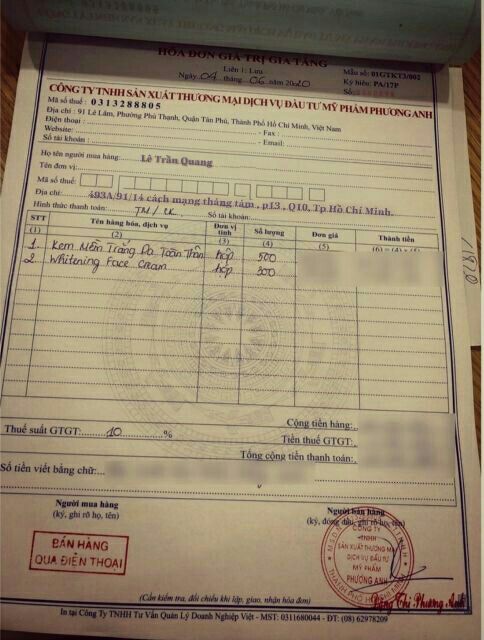 HÓA ĐƠN GIÁ TRỊ GIA TĂNG
Liên 1: Lưu
Mẫu số: 01GTKT3/002
Ngày 04 tháng 06 năm 2020
Ký hiệu: PA/17P
Số:
CÔNG TY TNHH SẢN XUẤT THƯƠNG MẠI DỊCH VỤ ĐẦU TƯ MỸ PHẨM PHƯƠNG ANH
Mã số thuế: 0313288805
Địa chỉ: 91 Lê Lâm, Phường Phú Thạnh, Quận Tân Phú, Thành Phố Hồ Chí Minh, Việt Nam
Điện thoại: - Fax:
Website: - Email:
Số tài khoản:
Họ tên người mua hàng: Lê Trần Quang
Tên đơn vị:
Mã số thuế:
Địa chỉ: 493A/91/14 cách mạng tháng tám, p13, Q10, Tp Hồ Chí Minh.
Hình thức thanh toán: TM/CK Số tài khoản:
STT Tên hàng hóa, dịch vụ Đơn vị tính Số lượng Đơn giá Thành tiền
(1) (2) (3) (4) (5) (6) = (4) x (5)
1 Kem Mền Trắng Da Toàn Thân hộp 500
2 Whitening Face Cream hộp 300
1820
Cộng tiền hàng:
Thuế suất GTGT: 10 % Tiền thuế GTGT:
Tổng cộng tiền thanh toán:
Số tiền viết bằng chữ:
Người mua hàng Người bán hàng
(ký, ghi rõ họ, tên) (ký, đóng dấu, ghi rõ họ, tên)
BÁN HÀNG
QUA ĐIỆN THOẠI
CÔNG TY
TNHH
SẢN XUẤT THƯƠNG MẠI
DỊCH VỤ ĐẦU TƯ
MỸ PHẨM
PHƯƠNG ANH
THÀNH PHỐ HỒ CHÍ MINH
Đặng Thị Phương Anh
(Cần kiểm tra, đối chiếu khi lập, giao, nhận hóa đơn)
In tại Công Ty TNHH Tư Vấn Quản Lý Doanh Nghiệp Việt - MST: 0311680044 - ĐT: (08) 62978209